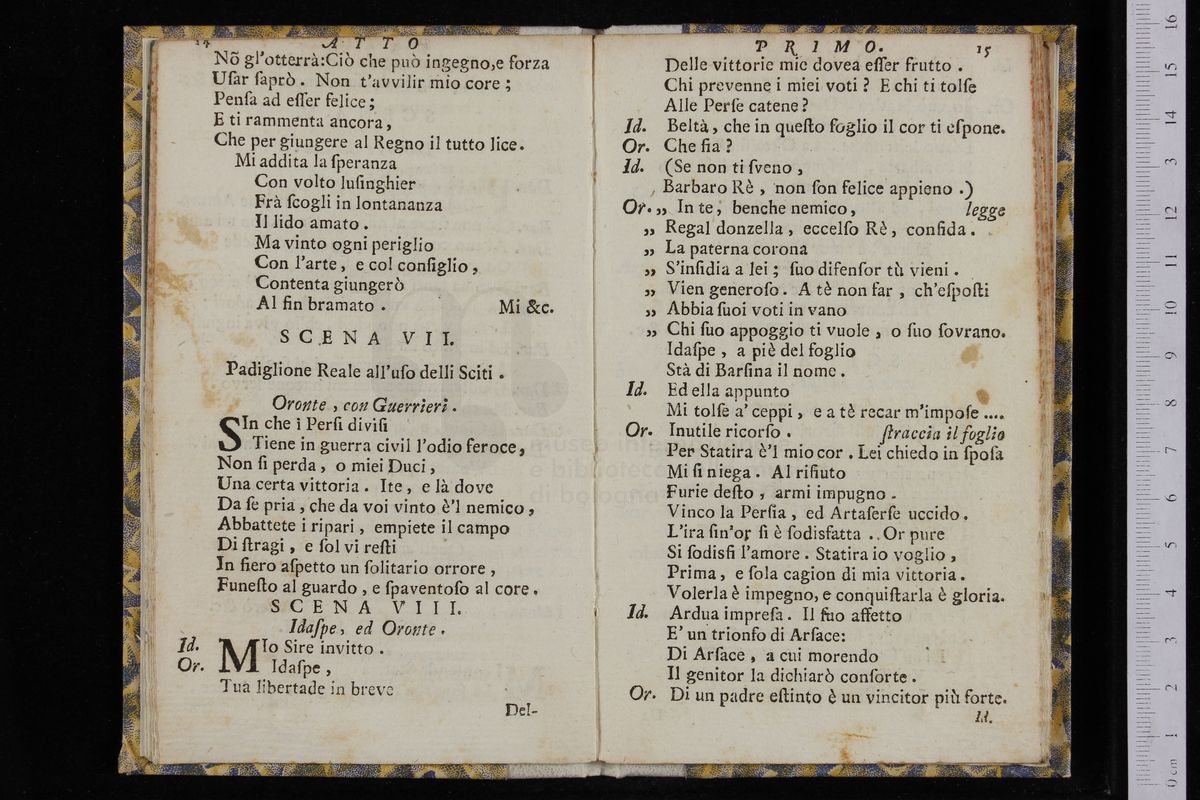 14 ATTO
Nõ gl'otterrà:Ciò che può ingegno,e forza
Uſar ſaprò. Non t'avvilir mio core;
Penſa ad eſſer felice;
E ti rammenta ancora,
Che per giungere al Regno il tutto lice.
Mi addita la ſperanza
Con volto luſinghier
Frà ſcogli in lontananza
Il lido amato.
Ma vinto ogni periglio
Con l'arte, e col conſiglio,
Contenta giungerò
Al fin bramato. Mi &c.
SCENA VII.
Padiglione Reale all'uſo delli Sciti.
Oronte, con Guerrieri.
SIn che i Perſi diviſi
Tiene in guerra civil l'odio feroce,
Non ſi perda, o miei Duci,
Una certa vittoria. Ite, e là dove
Da ſe pria, che da voi vinto è'l nemico,
Abbattete i ripari, empiete il campo
Di ſtragi, e ſol vi reſti
In fiero aſpetto un ſolitario orrore,
Funeſto al guardo, e ſpaventoſo al core.
SCENA VIII.
Idaſpe, ed Oronte.
Id. MIo Sire invitto.
Or. Idaſpe,
Tua libertade in breve
Del-
PRIMO. 15
Delle vittorie mie dovea eſſer frutto.
Chi prevenne i miei voti? E chi ti tolſe
Alle Perſe catene?
Id. Beltà, che in queſto foglio il cor ti eſpone.
Or. Che ſia?
Id. (Se non ti ſveno,
Barbaro Rè, non ſon felice appieno.)
Or. „ In te, benche nemico, legge
„ Regal donzella, eccelſo Rè, confida.
„ La paterna corona
„ S'inſidia a lei; ſuo difenſor tù vieni.
„ Vien generoſo. A tè non far, ch'eſpoſti
„ Abbia ſuoi voti in vano
„ Chi ſuo appoggio ti vuole, o ſuo ſovrano.
Idaſpe, a piè del foglio
Stà di Barſina il nome.
Id. Ed ella appunto
Mi tolſe a' ceppi, e a tè recar m'impoſe ....
Or. Inutile ricorſo. ſtraccia il foglio
Per Statira è'l mio cor. Lei chiedo in ſpoſa
Mi ſi niega. Al rifiuto
Furie deſto, armi impugno.
Vinco la Perſia, ed Artaſerſe uccido.
L'ira ſin'or ſi è ſodisfatta.. Or pure
Si ſodisfi l'amore. Statira io voglio,
Prima, e ſola cagion di mia vittoria.
Volerla è impegno, e conquiſtarla è gloria.
Id. Ardua impreſa. Il ſuo affetto
E' un trionfo di Arſace:
Di Arſace, a cui morendo
Il genitor la dichiarò conſorte.
Or. Di un padre eſtinto è un vincitor più forte.
Id.